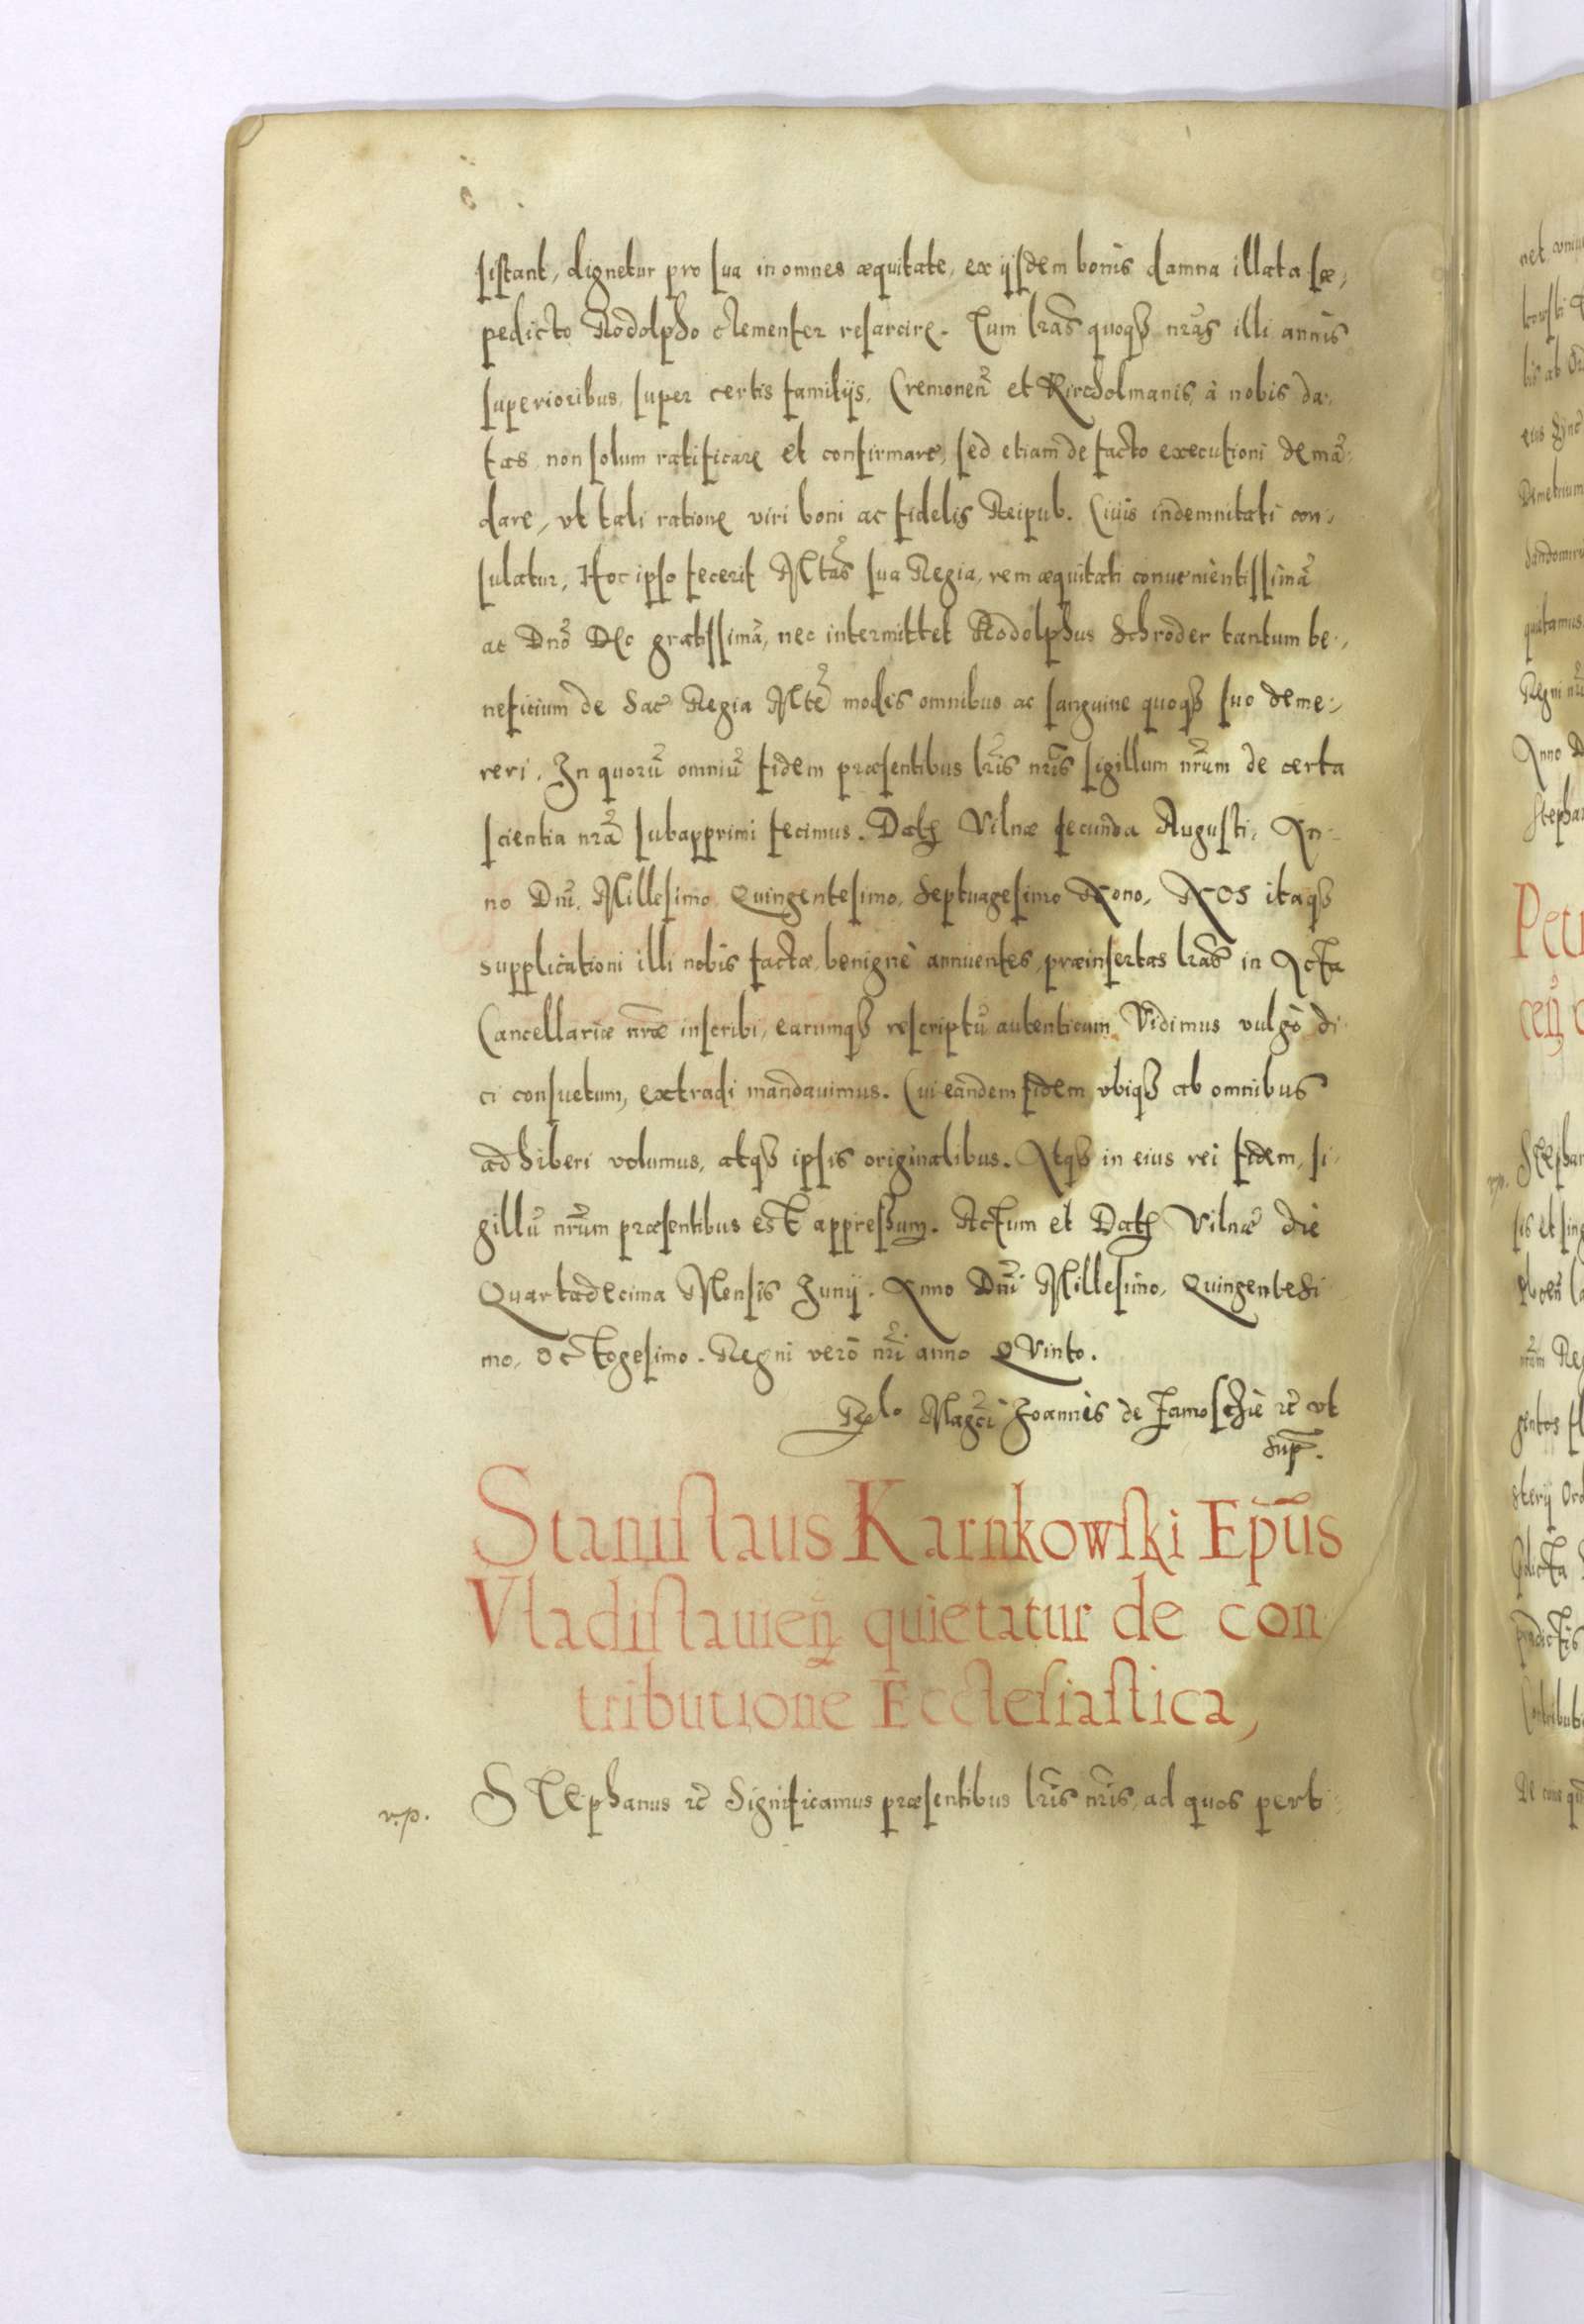 sistant, dignetur pro sua in omnes æquitate, ex ijsdem bonis damna illata sæ,
pedicto Rodolpho clementer resarcire. Tum lras quoqȝ nras illi annis
superioribus, super certis familijs, Cremoneñ et Kircholmanis, à nobis da,
tas, non solum ratificare et confirmare, sed etiam de facto executioni demã,
dare, vt tali ratione viri boni ac fidelis Reipub. Ciuis indemnitati con,
sulatur, Hoc ipso fecerit Mtas sua Regia, rem æquitati conuenientissimã
ac Dno Deo gratissimã, nec intermittet Rodolphus Schroder tantum be,
neficium de Sac Regia Mte modis omnibus ac sanguine quoqȝ suo deme,
reri. In quorũ omniũ fidem præsentibus lris nris sigillum nrum de certa
scientia nra subapprimi fecimus. Dat Vilnæ secunda Augusti, An-
no Dni. Millesimo Quingentesimo, Septuagesimo Nono, NOS itaqȝ
supplicationi illi nobis factæ, benignè annuentes, præinsertas lras in Acta
Cancellariæ nræ inscribi, earumqȝ rescriptũ autenticum Vidimus vulgò di
ci consuetum, extradi mandauimus. Cui eandem fidem vbiqȝ ab omnibus
adhiberi volumus, atqȝ ipsis originalibus. Atqȝ in eius rei fidem, si
gillũ nrum præsentibus est appressum. Actum et Dat Vilnæ die
Quartadecima Mensis Junij. Anno Dni Millesimo, Quingentesi
mo, octogesimo. Regni verò nri anno Quinto.
Rel Magci Joannis de Zamoschie ꝛc vt
sup.
Stanislaus Karnkowski Epus
Vladislauieñ quietatur de con
tributione Ecclesiastica,
v.p. Stephanus ꝛc Significamus præsentibus lris nris, ad quos perti